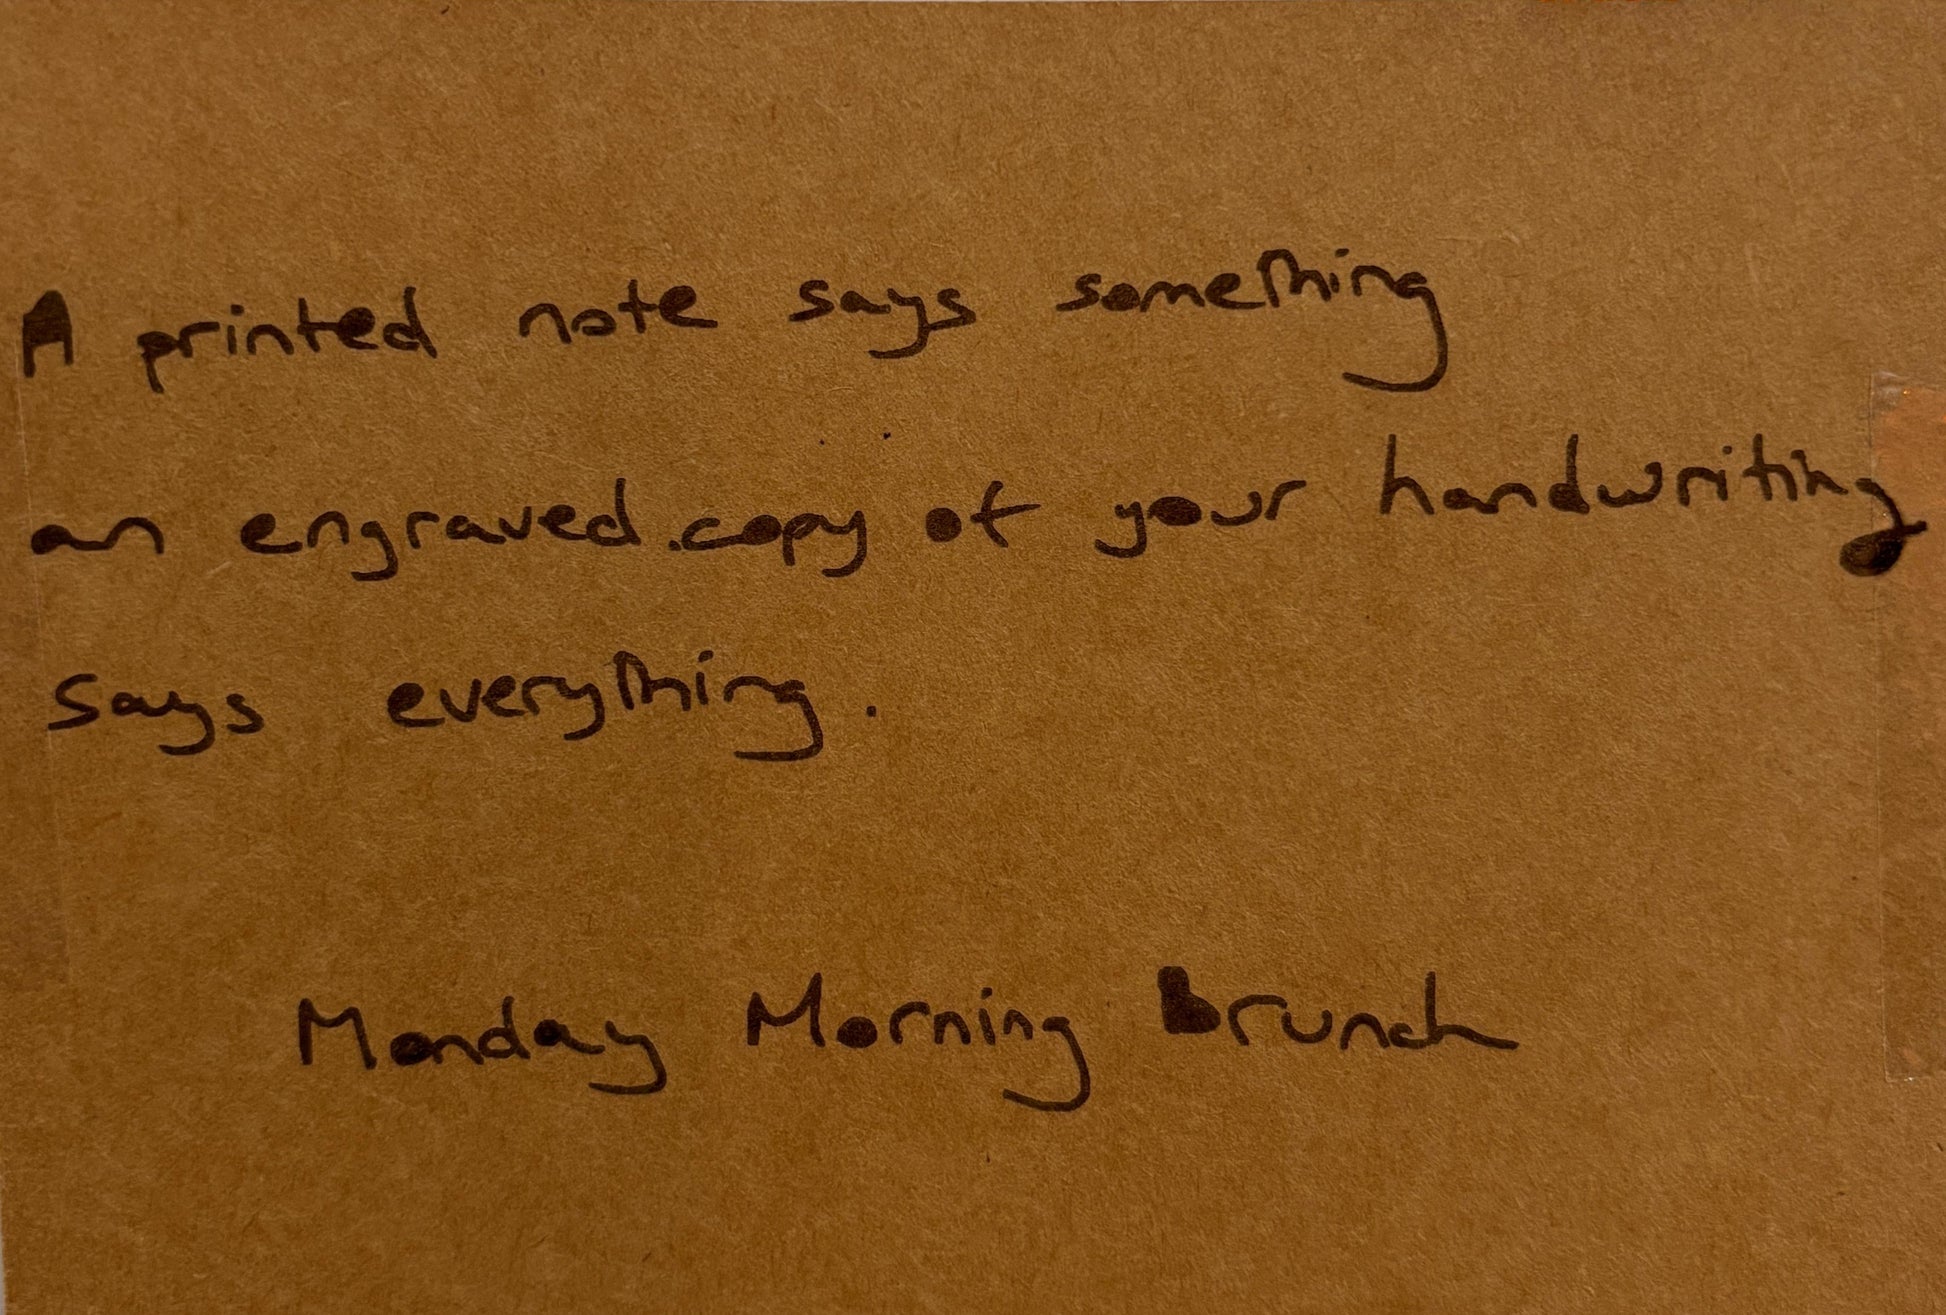 A printed note says something
an engraved copy of your handwriting
says everything.
Monday Morning Brunch